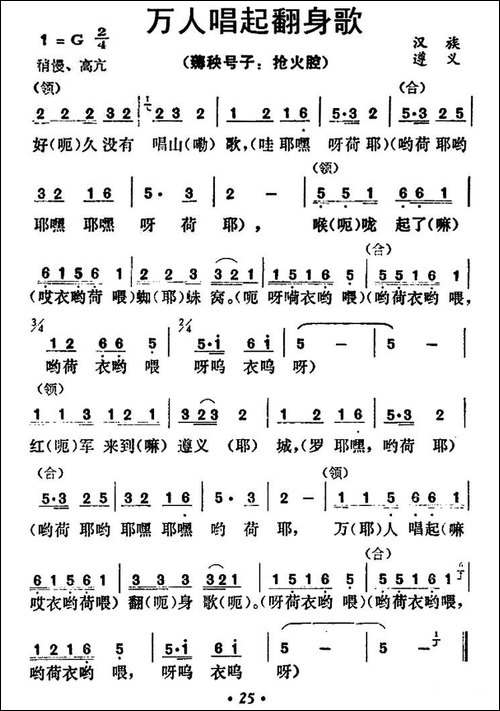 万人唱起翻身歌
1=G 2/4
汉族
稍慢、高亢
(薅秧号子：抢火腔)
遵义
(领) (合)
2 2 2 32 | 2·3 32 | 1 2 16 | 5·3 2 | 5·3 25 |
好(呃)久没有 唱山(嘞)歌，(哇耶嘿 呀荷耶)(哟荷耶哟
(领)
32 16 | 5· 3 | 2 - | 5 5 1 | 6 6 1 |
耶嘿 耶嘿 呀 荷 耶)， 喉(呃)咙 起了(嘛)
(合)
6156 1 | 2 2 3 | 321 | 1516 5 | 5516 1 |
(哎衣哟荷 喂)蜘(耶)蛛 窝。(呃 呀嗬衣哟 喂)(哟荷衣哟 喂，
3/4 3/4
12 66 5 | 5·i 6i 6 | 5 - - | 5 - - |
哟荷 衣哟 喂 呀呜衣呜 呀)
(领)
1 1 3 | 1 2 1 | 323 | 2 16 | 5·3 2 |
红(呃)军 来到(嘛) 遵义 (耶) 城，(罗 耶嘿，哟荷 耶)
(合) (领)
5·3 25 | 32 16 | 5· 3 | 2 - | 1 1 5 | 6 6 1 |
(哟荷 耶哟 耶嘿 耶嘿 哟 荷 耶， 万(耶)人 唱起(嘛
(合)
6156 1 | 3 3 3 | 321 | 1516 5 | 5516 1 |
哎衣哟荷喂) 翻(呃)身 歌(呃)。(呀荷衣哟 喂)(哟荷衣哟喂，
1216 5 | 5·i 6i | 5 - | 5 - |
哟荷衣哟 喂， 呀呜 衣呜 呀)
·25·